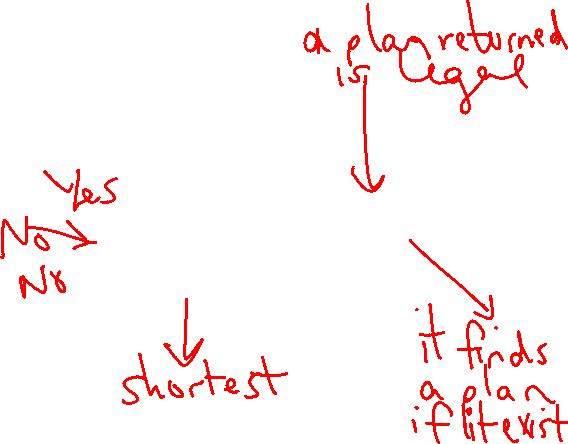 a plan returned
is legal
Yes
No
No
shortest
it finds
a plan
if it exist